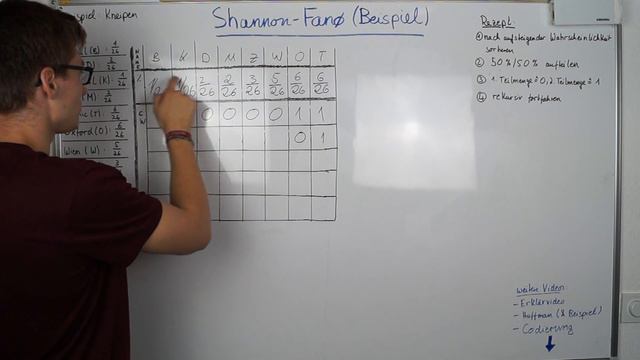 Shannon-Fanø (Beispiel)
spiel: Kneipen
(B): 1/26
D): 2/26
(K): 1/26
(M): 2/26
(T): 6/26
Oxford (O): 6/26
Wien (W): 5/26
B K D M Z W O T
2/26 2/26 3/26 5/26 6/26 6/26
0 0 0 0 1 1
0 1
Rezept:
① nach aufsteigender Wahrscheinlichkeit
sortieren
② 50%/50% aufteilen
③ 1. Teilmenge ≙ 0, 2. Teilmenge ≙ 1
④ rekursiv fortfahren
weitere Videos
- Erklärvideo
- Huffman (& Beispiel)
- Codierung